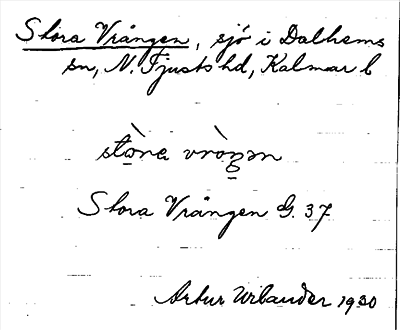 Stora Vrången, sjö i Dalhems
sn, N. Tjusts hd, Kalmar l
stòra vròŋən
Stora Vrången G. 37
Artur Urbander 1930